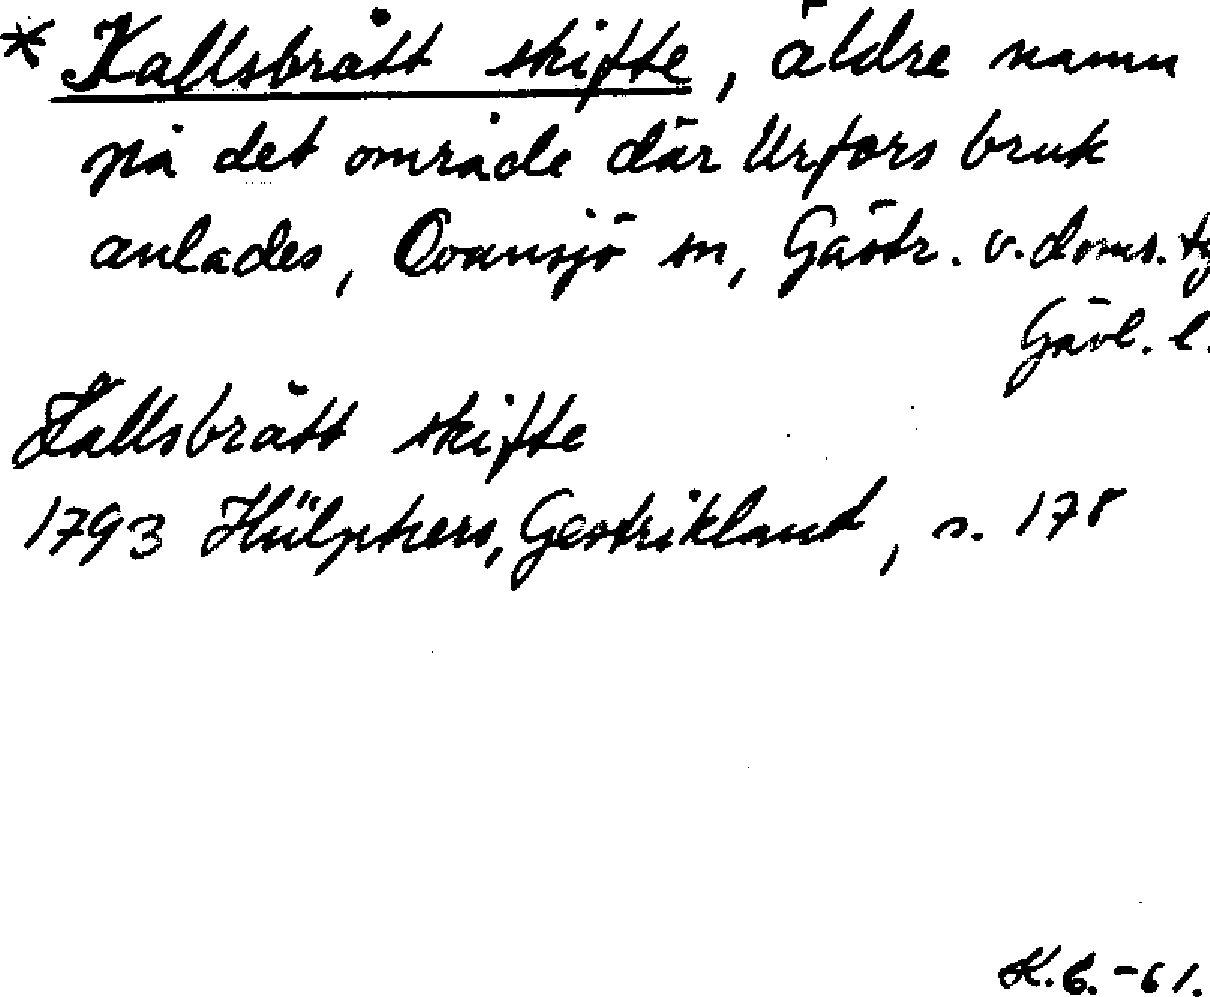 * Kallsbrått skifte, äldre namn
på det område där Urfors bruk
anlades, Ovansjö sn, Gästr. v. doms. tg
Gävl. l.
Kallsbrått skifte
1793 Hülphers, Gestrikland, s. 178
K.B. -61.